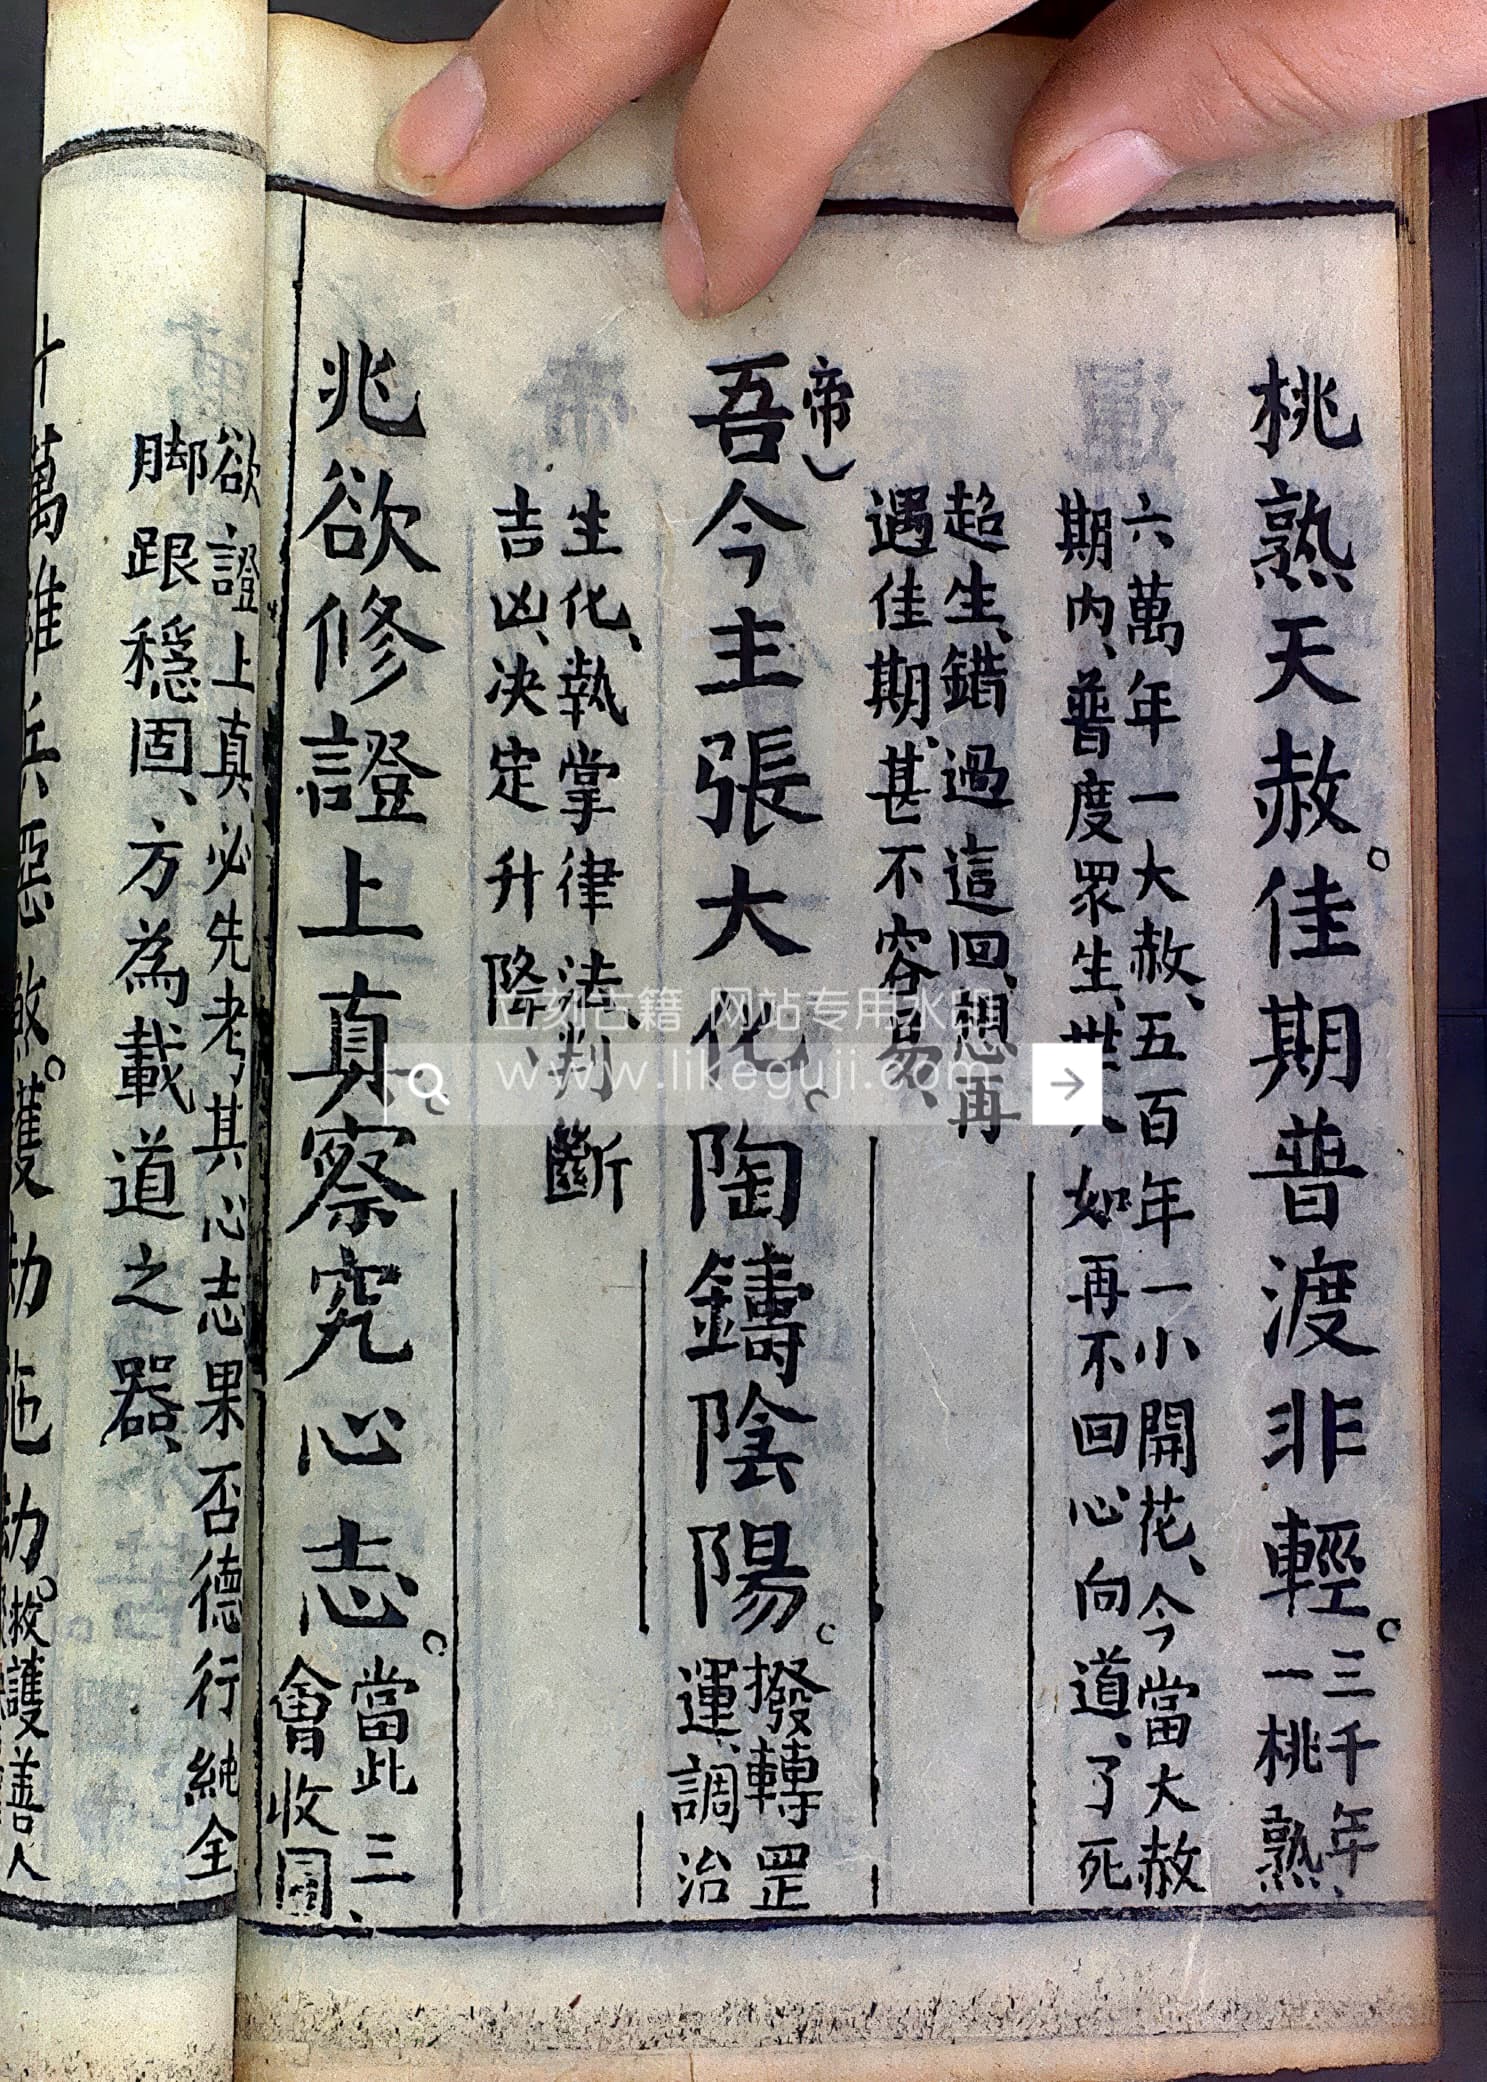 桃熟天赦。佳期普渡非輕。三千年、
一桃熟
六萬年一大赦、五百年一小開花、今當大赦
期內、普度眾生、世人如再不回心向道、了死
超生、錯過這回、想再
遇佳期、甚不容易、
帝
吾今主張大化。陶鑄陰陽。撥轉罡
運、調治
生化、執掌律法、判斷
吉凶、決定升降、
兆欲修證上真。察究心志。當此三、
會收圓
欲證上真、必先考其心志果否德行純全
脚跟穩固、方為載道之器、
十萬雄兵惡煞。護劫施劫。救護善人
立刻古籍 网站专用水印
www.likeguji.com